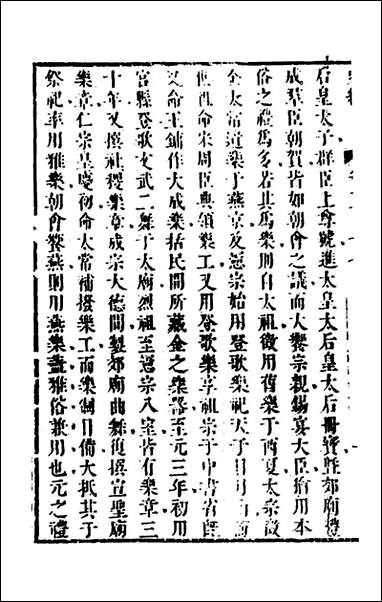 后皇太子群臣上尊號進太皇太后皇太后冊寶暨郊廟禮
成羣臣朝賀皆如朝會之議而大饗宗親錫宴大臣猶用本
俗之禮爲多若其爲樂則自太祖徵用舊樂于西夏太宗徵
金太常遺樂于燕京及憲宗始用登歌樂祀天于日月山而
祖命宋周臣典領樂工又用登歌樂享祖宗于中書省既
又命王鏞作大成樂括民間所藏金之樂器至元三年初用
宮縣登歌文武二舞于太廟烈祖至憲宗八室皆有樂章三
十年又撰社稷樂章成宗大德間製郊廟曲舞復撰宣聖廟
樂章仁宗皇慶初命太常補撥樂工而樂制日備大抵其于
祭祀率用雅樂朝會饗燕則用燕樂蓋雅俗兼用也元之禮